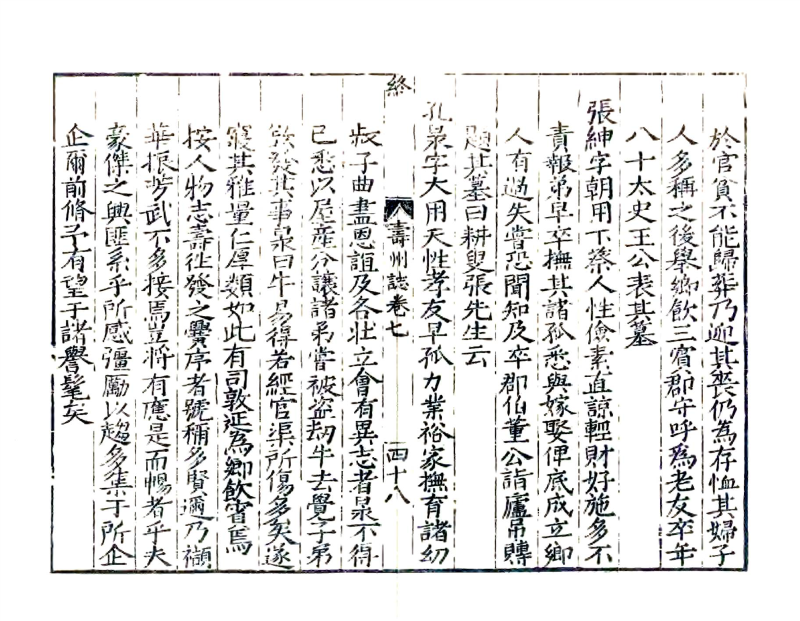 於官貧不能歸葬乃迎其喪仍為存恤其婦子
人多稱之後舉鄉飲三賓郡守呼為老友卒年
八十太史王公表其墓
張紳字朝用下蔡人性儉素直諒輕財好施多不
責報弟早卒撫其諸孤悉與嫁娶俾底成立鄉
人有過失嘗恐聞知及卒郡伯董公詣廬吊賻
題其墓曰耕叟張先生云
孔杲字大用天性孝友早孤力業裕家撫育諸幼
終
壽州誌卷七
四十八
叔子曲盡恩誼及各壯立會有異志者杲不得
已悉以屋産分讓諸弟嘗被盜劫牛去覺子弟
欲發其事杲曰牛易得若經官渠所傷多矣遂
寢其雅量仁厚類如此有司敦延為鄉飲賓焉
按人物志壽徃發之黌序者號稱多賢邇乃
華振芳武不多接焉豈將有應是而暢者乎夫
豪傑之興匪系乎所感彊勵以趨多集于所企
企爾前脩予有望于諸譽髦矣